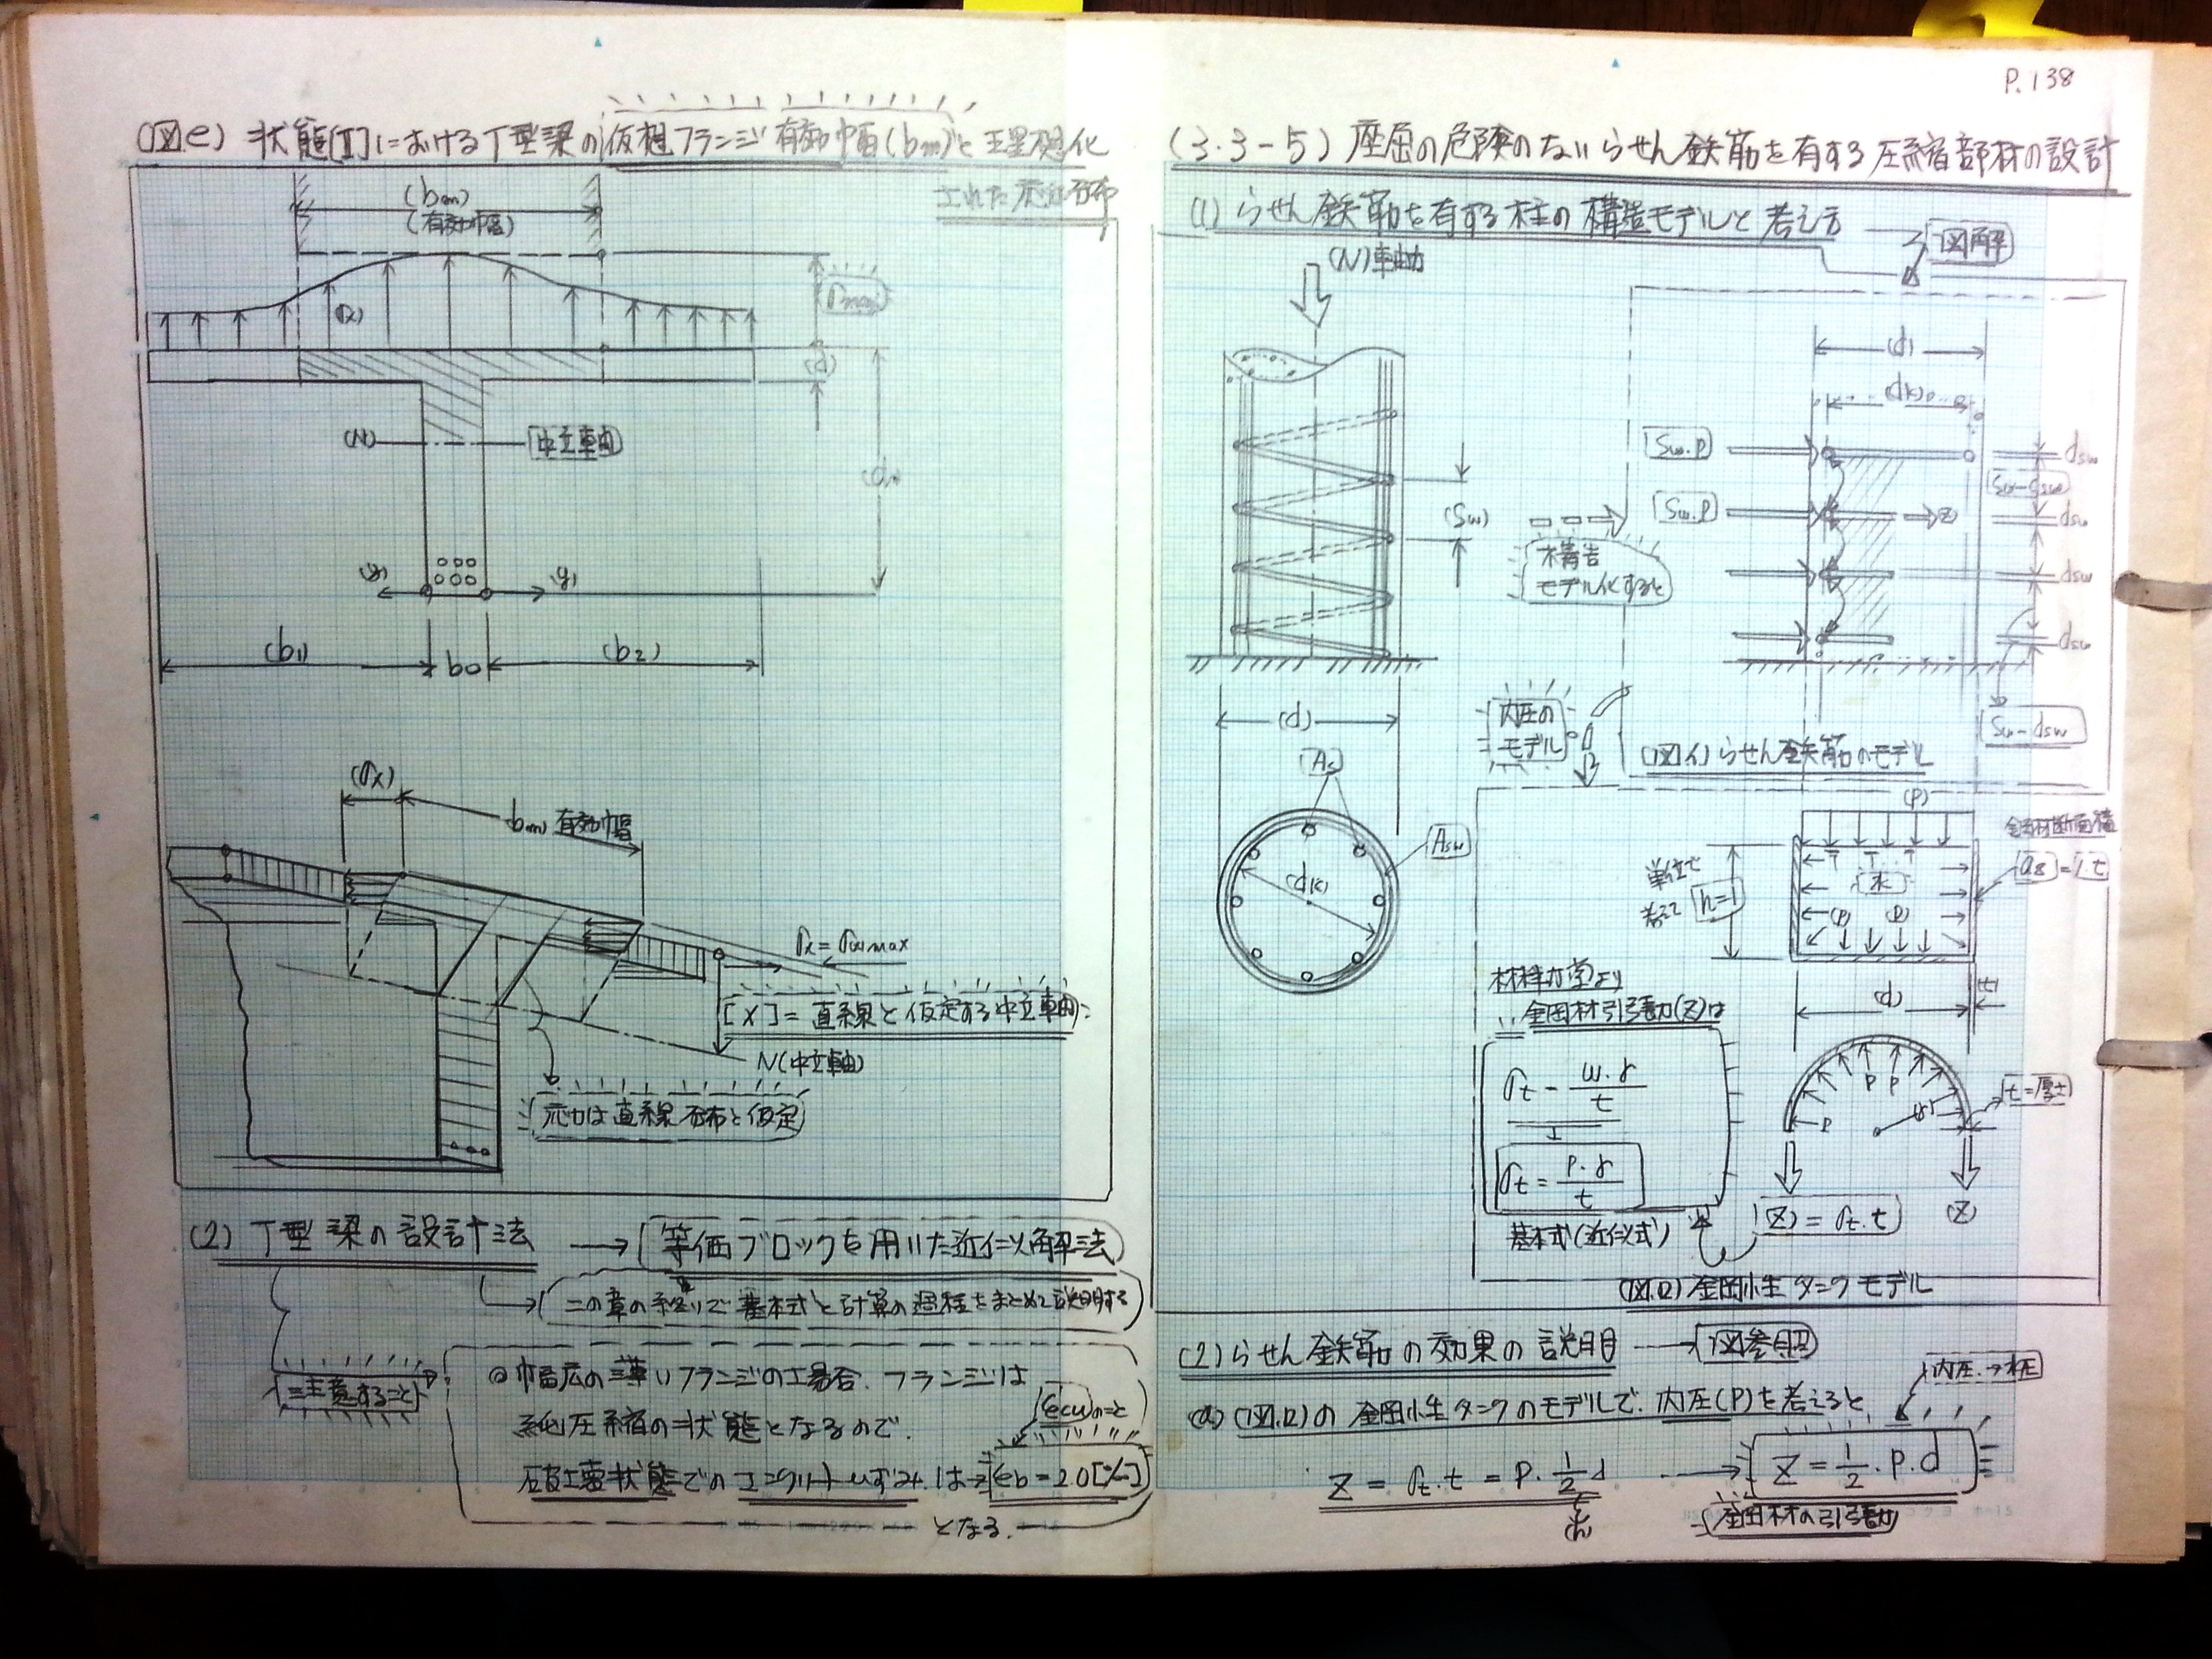 (図.e) 状態[Ⅱ]における丁型梁の仮想フランジ有効巾幅(bm)と理想化
された応力分布
(bm)
(有効巾幅)
σmax
(σx)
(d)
(N)
中立軸
(y)
(y)
(b1)
bo
(b2)
(σx)
bm) 有効巾幅
σx = σxmax
[X] = 直線と仮定する中立軸:
N(中立軸)
応力は直線分布と仮定
(2) 丁型梁の設計法 → 等価ブロックを用いた近似解法
この章の終りで基本式と計算の過程をまとめて説明する
注意すること
◎ 巾幅広の薄いフランジの場合、フランジは
純圧縮の状態となるので、
(εcu)のこと
破壊状態でのコンクリートひずみ.は→ εb = 2.0[‰]
となる.
P.138
(3.3-5) 座屈の危険のないらせん鉄筋を有する圧縮部材の設計
(1) らせん鉄筋を有する柱の構造モデルと考え方 → 図解
(N)軸力
(d)
(dk)
Sw.P
dsw
Sw-dsw
(Sw)
Sw.P
Z
dsw
構造
モデル化すると
dsw
dsw
Sw-dsw
(d)
内圧の
モデル
(図.イ) らせん鉄筋のモデル
As
Asw
(dk)
(P)
鋼材断面積
単位で
考えて h=1
水
(P) (P)
as = 1.t
(d)
t
材料力学より
鋼材引張力(Z)は
σt = w.r / t
σt = P.r / t
基本式(近似式)
P P
P
(r)
t=厚さ
(Z) = σt.t
(Z)
(図.ロ) 金岡性タンクモデル
(2) らせん鉄筋の効果の説明 → 図参照
(a) (図.ロ)の金岡性タンクのモデルで、内圧(P)を考えると
内圧.→水圧
Z = σt.t = P.1/2 d → Z = 1/2.P.d
鋼材の引張力